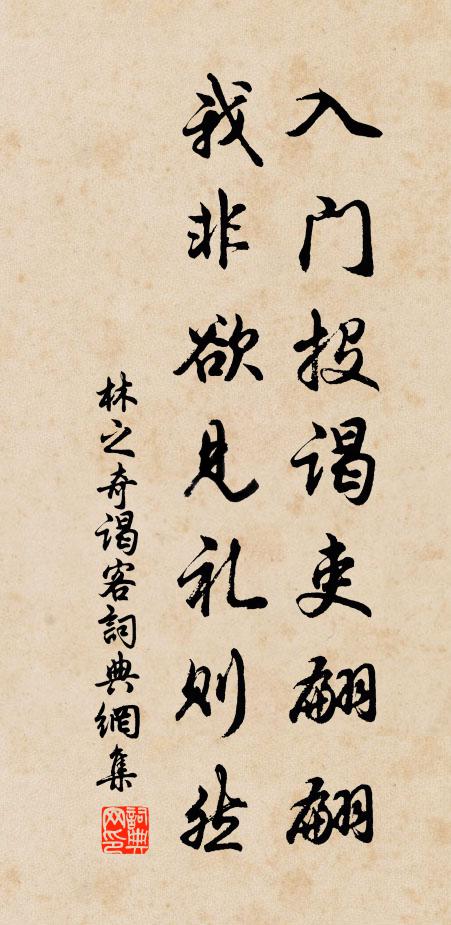 入门投谒吏翩翩
我非欲见礼则然
林之奇谒客詞典網集
詞典网印